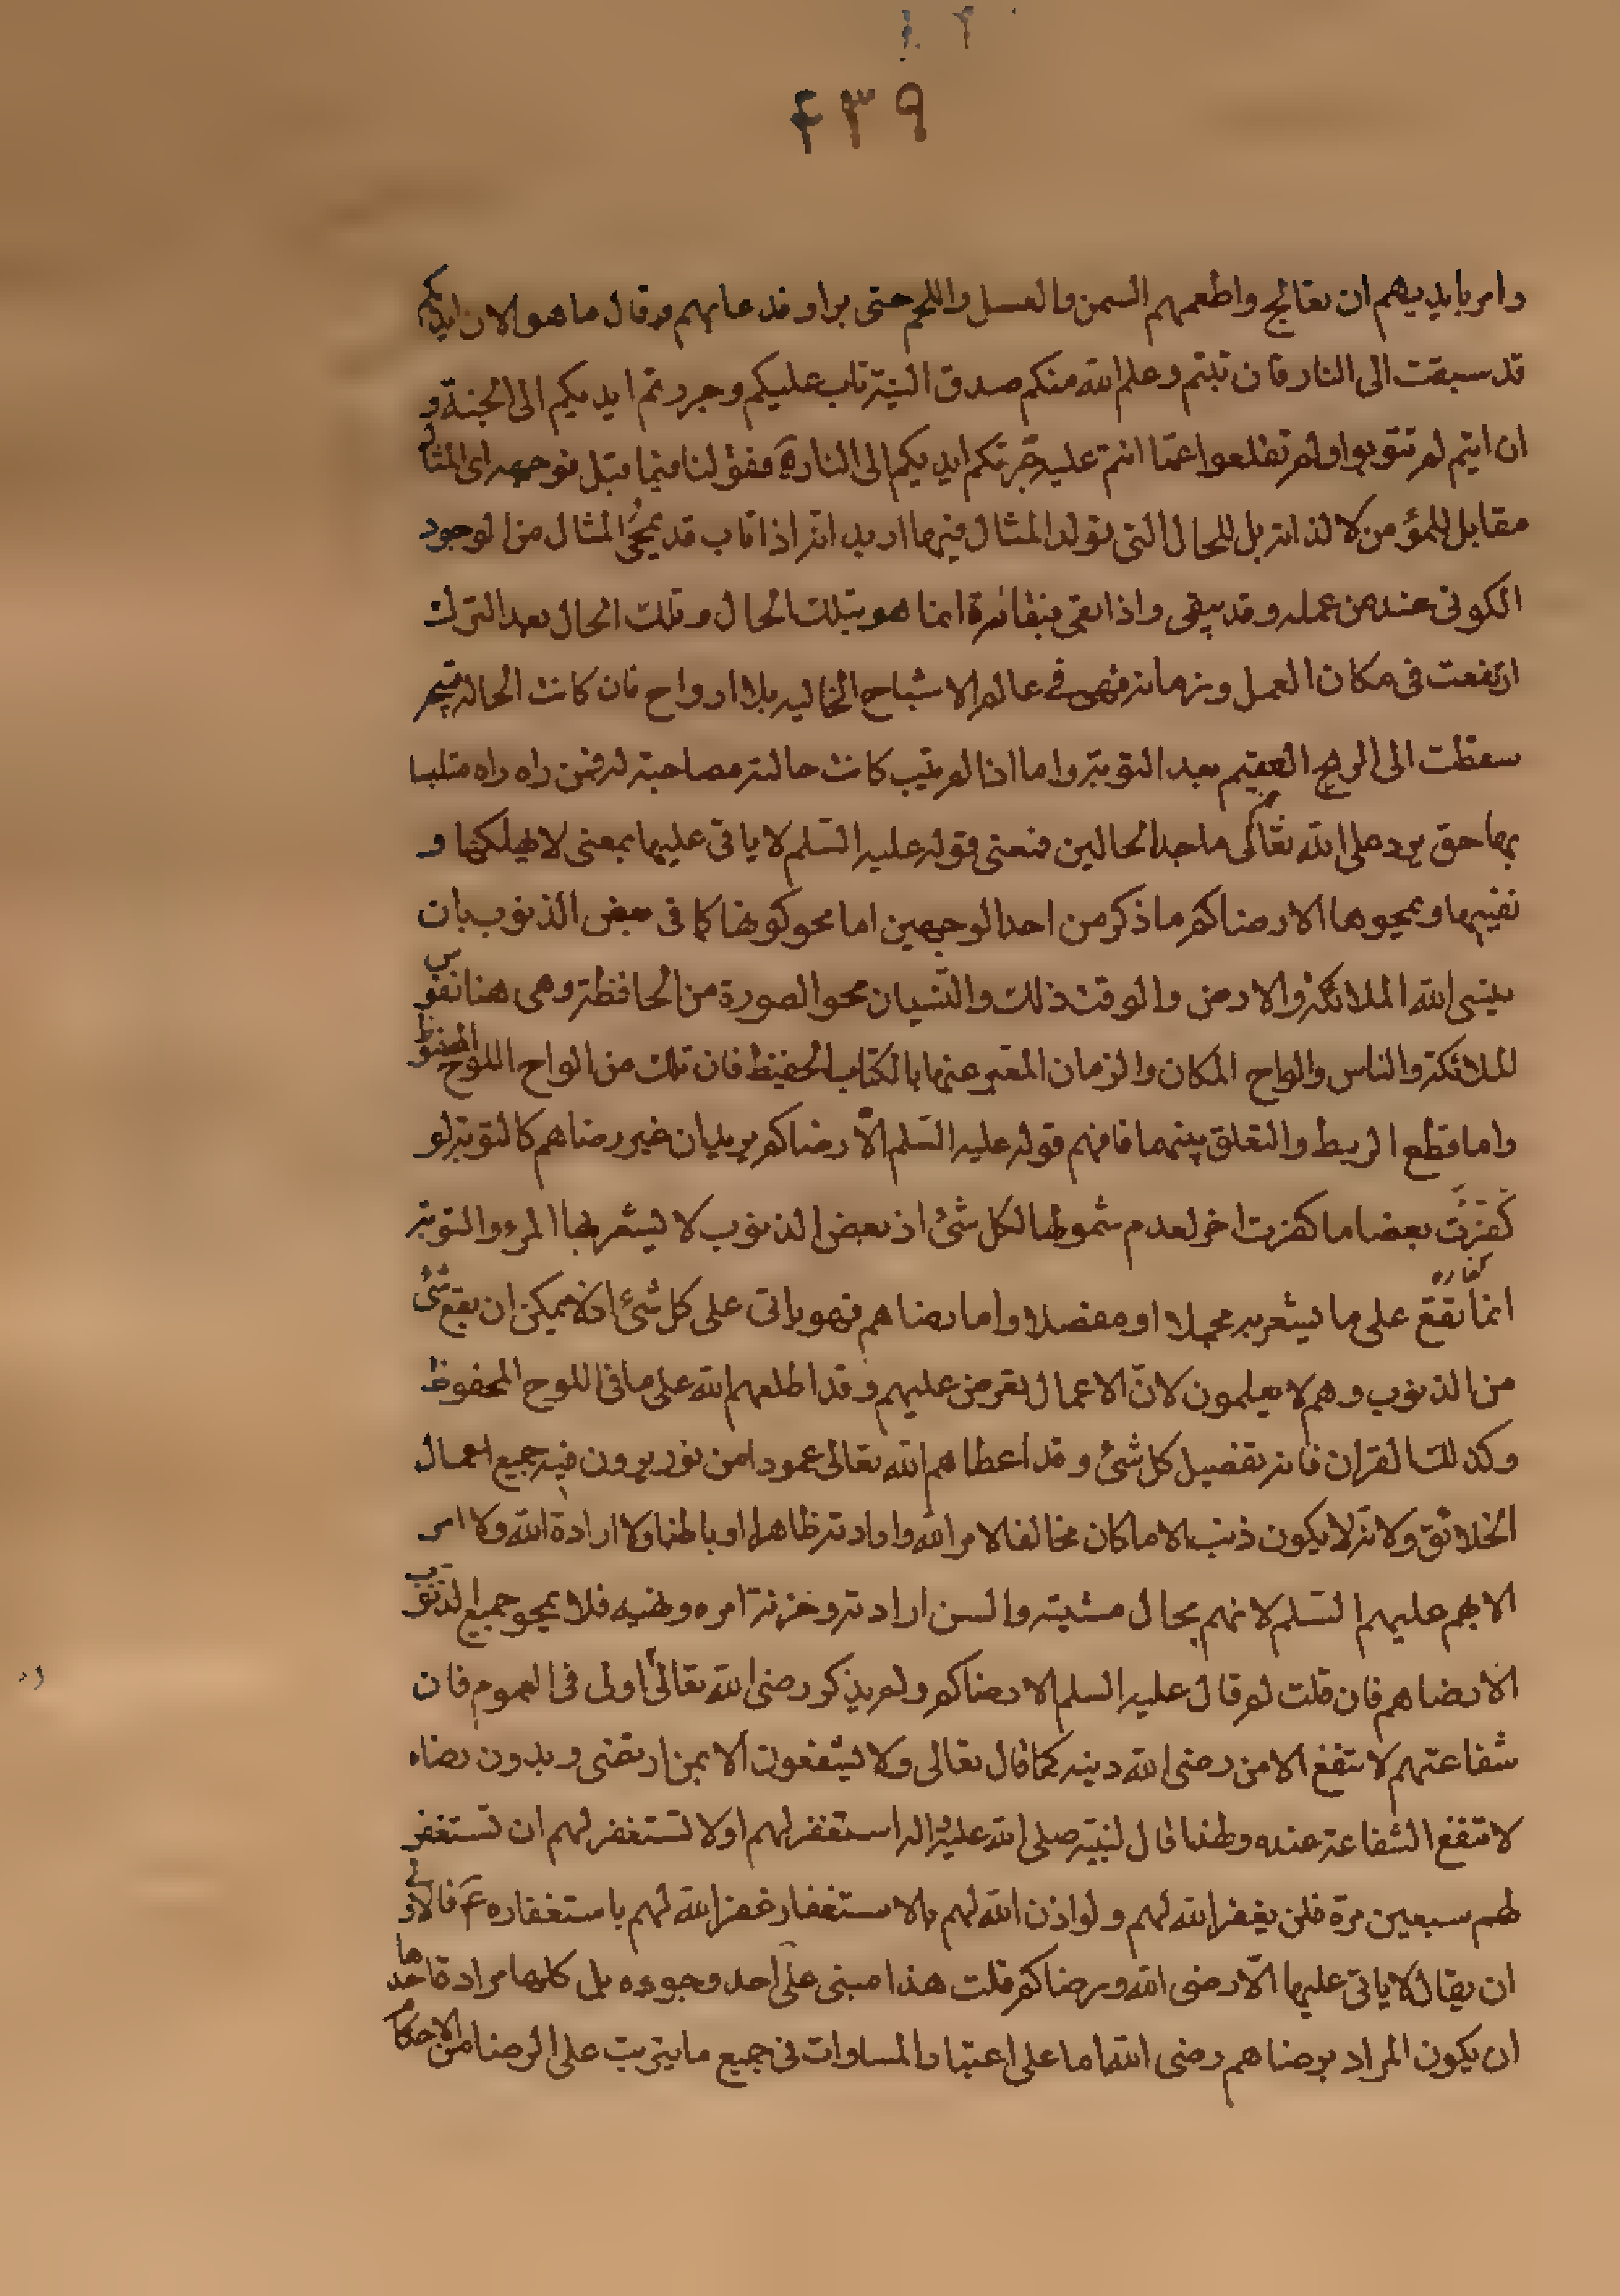 ۴۳۹
وامر بايديهم ان تعالج واطعمهم السمن والعسل واللحم حتى براوا فدعا بهم وقال ما هولاء ان ايديكم
قد سبقت الى النار فان تبتم وعلم الله منكم صدق النية تاب عليكم وجررتم ايديكم الى الجنة و
ان انتم لم تتوبوا ولم تقلعوا عما انتم عليه جرتكم ايديكم الى النار ه فقولنا فيما قبل نوجهه اى المثال
مقابل للمؤمن لا لذاته بل للحال التى تولد المثال فيها اريد انه اذا تاب قد يمحى المثال من الوجود
الكونى عند من عمله وقد يبقى واذا بقى فبقائه انما هو بتلك الحال وتلك الحال بعد الترك
ارتفعت فى مكان العمل وزمانه فهى فى عالم الاشباح الخالية بلا ارواح فان كانت الحالة
سقطت الى الريح العقيم بعد التوبة واما اذا لم يتب كانت حالته مصاحبة له فمن راه راه متلبسا
بها حتى يرد على الله تعالى باحد الحالين فمعنى قوله عليه السلم لا ياتى عليها بمعنى لا يهلكها و
نفيها ويمحوها الا رضاكم ما ذكر من احد الوجهين اما محو كونها كما فى بعض الذنوب بان
ينسى الله الملائكة والارض والوقت ذلك والنسيان محو الصورة من الحافظة وهى هنا نفوس
الملائكة والناس والواح المكان والزمان المعبر عنها بالكتاب الحفيظ فان تلك من الواح اللوح المحفوظ
واما قطع الربط والتعلق بينهما فافهم قوله عليه السلم الا رضاكم يريد ان غير رضاهم كالتوبة لو
كفرت بعضا ما كفرت اخر لعدم شمولها لكل شئ اذ بعض الذنوب لا يشعر بها المرء والتوبة
انما تقع كفارة على ما يشعر به مجملا او مفصلا واما رضاهم فهو ياتى على كل شئ اذ لا يمكن ان يقع شئ
من الذنوب وهم لا يعلمون لان الاعمال تعرض عليهم وقد اطلعهم الله على ما فى اللوح المحفوظ
وكذلك القران فانه تفصيل كل شئ وقد اعطاهم الله تعالى عمودا من نور يرون فيه جميع اعمال
الخلائق ولانه لا يكون ذنب الا ما كان مخالفا لامر الله وارادته ظاهرا او باطنا ولا ارادة الله ولا امر
الا بهم عليهم السلم لانهم محال مشيته والسن ارادته وخزنة امره ونهيه فلا يمحو جميع الذنوب
الا رضاهم فان قلت لم قال عليه السلم الا رضاكم ولم يذكر رضى الله تعالى اولى فى العموم فان
شفاعتهم لا تنفع الا من رضى الله دينه كما قال تعالى ولا يشفعون الا لمن ارتضى وبدون رضاه
لا تنفع الشفاعة عنده ولهذا قال لنبيه صلى الله عليه واله استغفر لهم او لا تستغفر لهم ان تستغفر
لهم سبعين مرة فلن يغفر الله لهم ولو اذن الله لهم بالاستغفار غفر الله لهم باستغفاره فالاولى
ان يقال لا ياتى عليها الا رضى الله ورضاكم قلت هذا مبنى على احد وجوه بل كلها مرادة احدها
ان يكون المراد برضاهم رضى الله اما على اعتبار المساوات فى جميع ما يترتب على الرضا من الاحكام